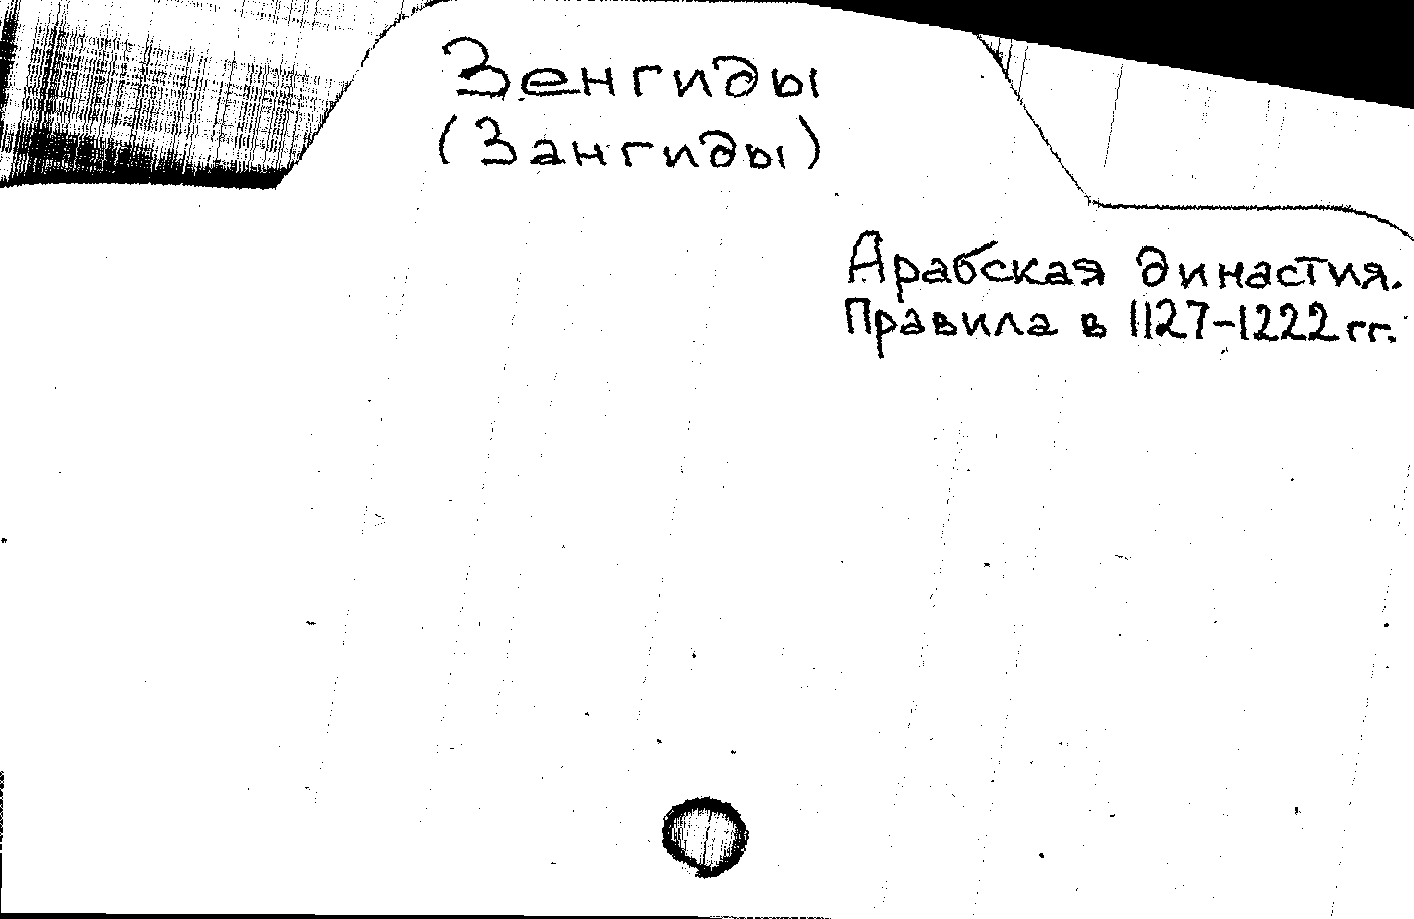 Зенгиды
(Зангиды)
Арабская династия.
Правила в 1127-1222 гг.